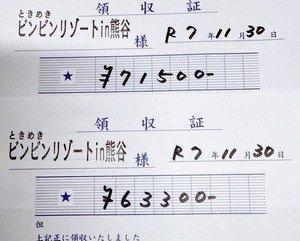 領収証
ときめき
ビンビンリゾートin熊谷 様 R7年11月30日
★ ¥71500-
領収証
ときめき
ビンビンリゾートin熊谷 様 R7年11月30日
★ ¥63300-
但
上記正に領収いたしました